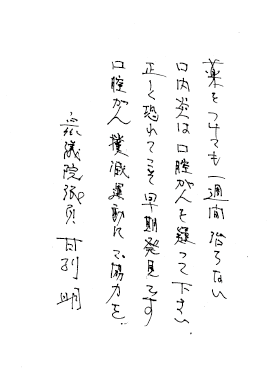 薬をつけても一週間治らない
口内炎は口腔がんを疑って下さい.
正しく恐れてこそ早期発見です
口腔がん撲滅運動にご協力を.
衆議院議員 甘利 明